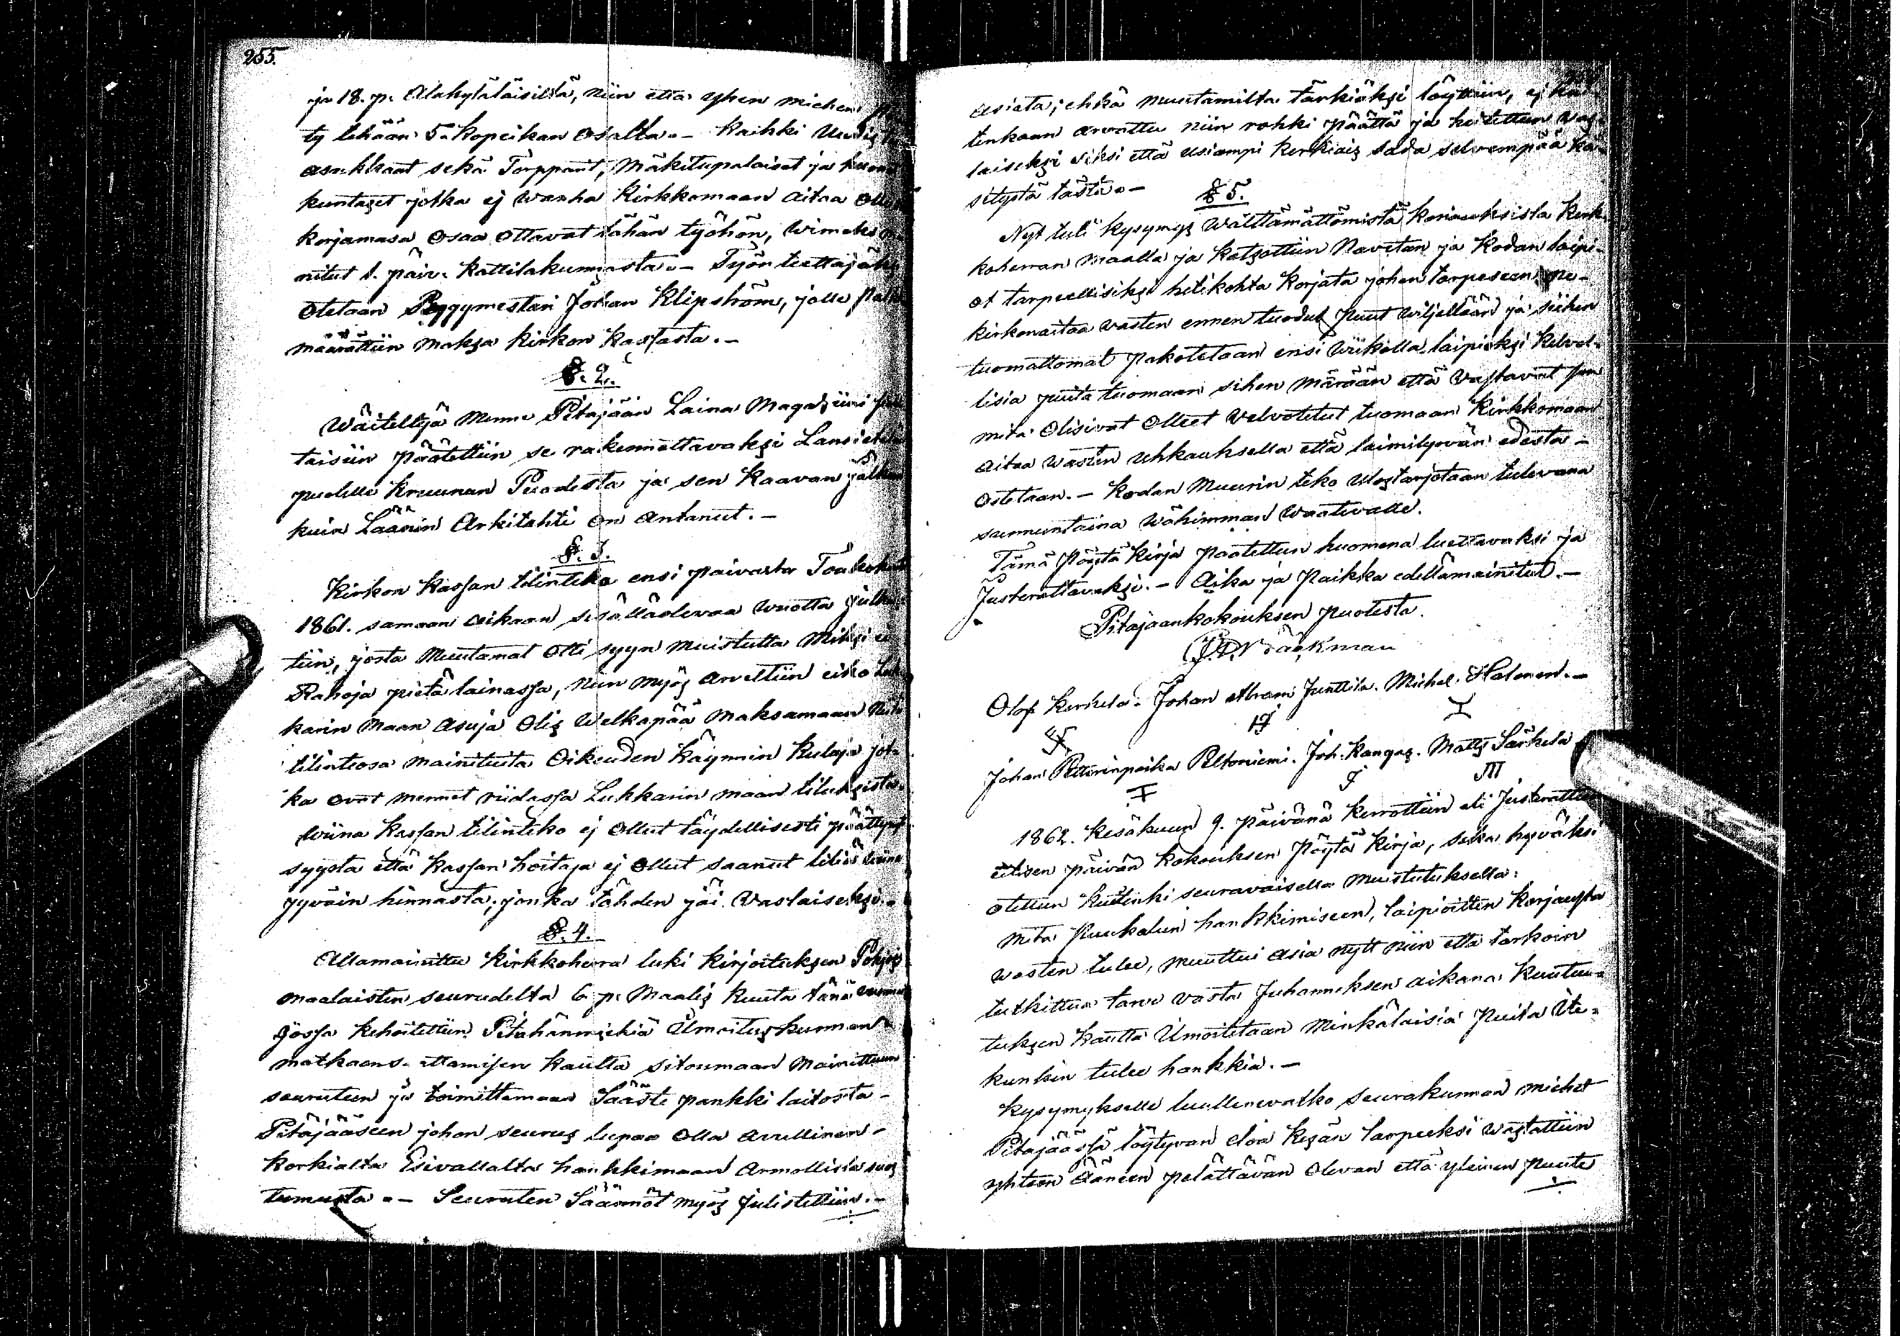 255.
ja 18. p. Alakyläläisillä, niin että yhen miehen
ty lehään 5 Kopeikan osalta.- Kaikki
asukkaat sekä Torppant, Mäkitupalaiset ja
kuntaset jotka ej wanha Kirkkomaan aitaa
korjamasa osaa ottavat tähän työhön,
nitut 1. päiv. Kattilakunnasta.- Työn teettäjäksi
otetaan Byggymestari Johan Klipström, jolle
määrättiin maksa kirkon kassasta.-
§. 2.
Wäiteltyä Menne Pitäjään Laina Magaziini
taisiin päätettiin se rakennettavaksi
puolelle Kruunun Puodista ja sen Kaavan jälkeen
kuin Läänin Arkitehti on antanut.-
§. 3.
Kirkon Kassan tilinteko ensi päivästä
1861. samaan aikaan sisälläolevaa wuotta
tiin, josta Muutamat otti syyn muistutta Miksi ei
Rahoja pietä lainassa, niin myös arveltiin eikö
karin maan asuja olis Welkapää Maksamaan
tilinteosa mainituita Oikeuden Käynnin Kuluja jot-
ka ovat mennet riidassa Lukkarin maan tiluksista.
Wiina Kassan tilinteko ej ollut täydellisesti päättynyt
syystä että Kassan hoitaja ej ollut saanut tiliä wiina
jyväin hinnasta, jonka tähden jäi Vastaiseksi.-
§. 4.
Allamainittu Kirkkoherra luki kirjoituksen
maalaisten seurudelta 6 p. Maalis Kuuta tänä vuonna
jossa kehoitettiin Pitähänmiehiä
matkaans-ttamisen kautta sitoumaan Mainittuun
seuruteen ja toimittamaan Säästö pankki laitosta
Pitäjääseen johon seurus lupaa olla avullinen
Korkialta Esivallalta hankkimaan armollista suos
tumusta.- Seuruten Säännöt myös julistettiin.-
asiata; ehkä muutamilta tärkiäksi löyttiin, ej
tenkaan arvattu niin rohki päättä ja heitettiin Vas-
taiseksi siksi että usiampi kerkiais sada selvempää kä-
sitystä tästä.-
§ 5.
Nyt tuli kysymys Wälttämättömistä korjauksista Kirk-
koherran maalla ja katsottiin Navetan ja Kodan laipi-
ot tarpeellisiksi hetikohta korjata johon tarpeseen
kirkonaitaa vasten ennen tuodut puut wiljellään ja siihen
tuomattomat pakotetaan ensi wiikolla laipioksi kelvol-
lisia puita tuomaan sihen määrään että vastaavat sen
mitä Olisivat olleet Velvotetut tuomaan Kirkkomaan
aitaa wasten uhkauksella että laimilyövän edestä
ostetaan.- Kodan Muurin teko ulostarjotaan tulevana
sunnuntaina Wähimmän Waativalle.
Tämä Pöytä Kirja päätettiin huomena luettavaksi ja
Justerattavaksi.- Aika ja paikka edellämainitut.-
Pitäjäänkokouksen puolesta.
Olof Kerkelä. Johan Abram Junttila. Michel Halonen.-
Johan Petterinpoika Peltoniemi. Joh. Kangas. Matts Särkelä
1862. Kesäkuun 9. päivänä kerrottiin eli Justerattiin
eilisen päivän kokouksen Pöytä Kirja, seka hyväksi
otettiin kuitenki seuraavaisella Muistutuksella:
mitä Puukalun hankkimiseen, laipioitten korjausta
vasten tulee, muuttui asia nytt niin että tarkoin
tutkittua tarve vasta Juhanneksen aikana Kuutuu-
tuksen kautta Ilmoitetaan Minkälaisia Puita
kunkin tulee hankkia.-
Kysymykselle luullenevatko seurakunnan miehet
Pitäjäässä löytyvän eloa Kesän tarpeeksi wastattiin
yhteen Ääneen pelättävän olevan että yleinen puute